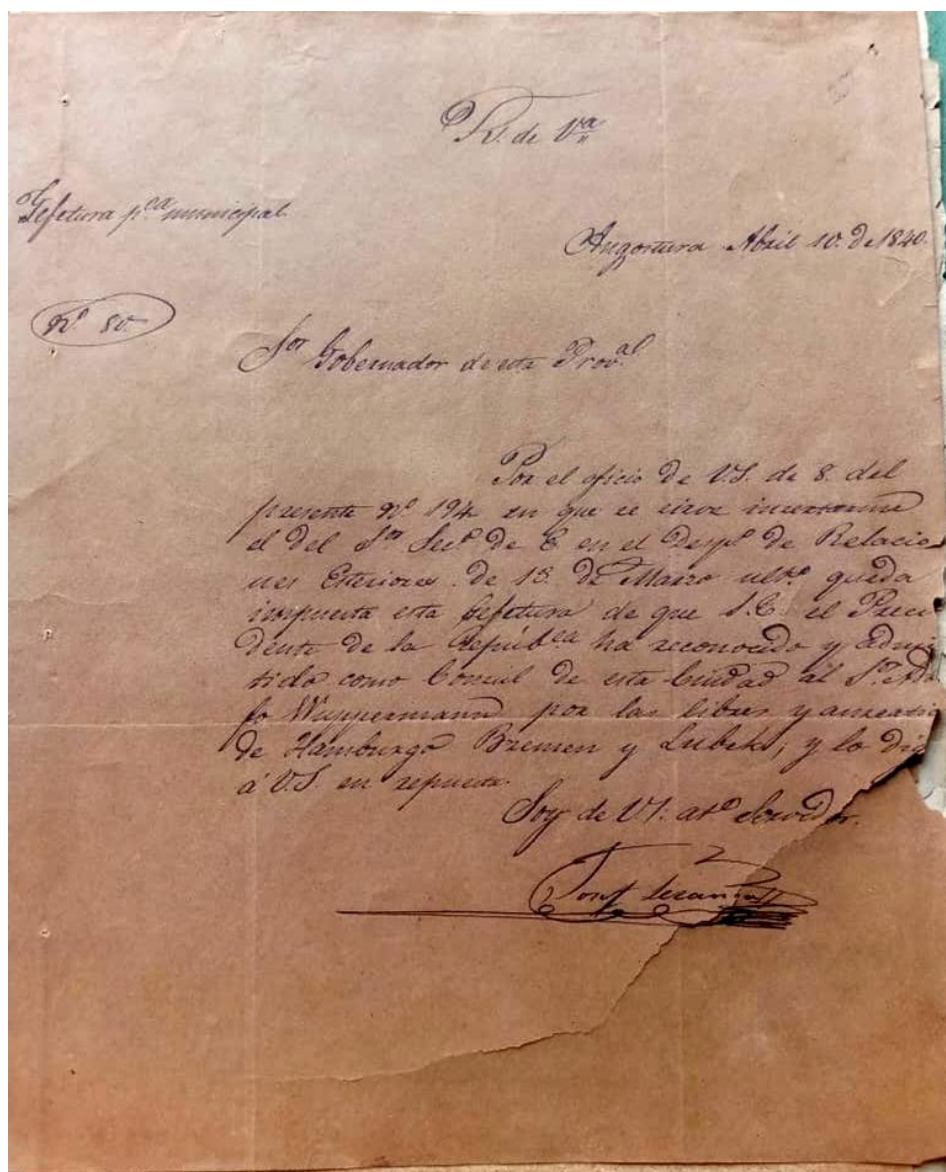 R. de Va
Gefetura p.ca municipal
Angostura Abril 10. de 1840.
Nº 80.
Sor Gobernador de esta Prov.al
Por el oficio de V.S. de 8. del
presente Nº 194 en que se sirve
el del Sor Secº de E en el Despº de Relacio
nes Esteriores de 13 de Marzo ultº queda
impuesta esta Gefetura de que S.E. el Preci
dente de la Repúb.ca ha reconocido y admi
tido como Consul de esta Ciudad al Sr.
fo Wuppermann por las libres y anseatic
de Hamburgo Bremen y Lubek; y lo dig
á V.S. en repuesta.
Soy de VS. atº Servidor.